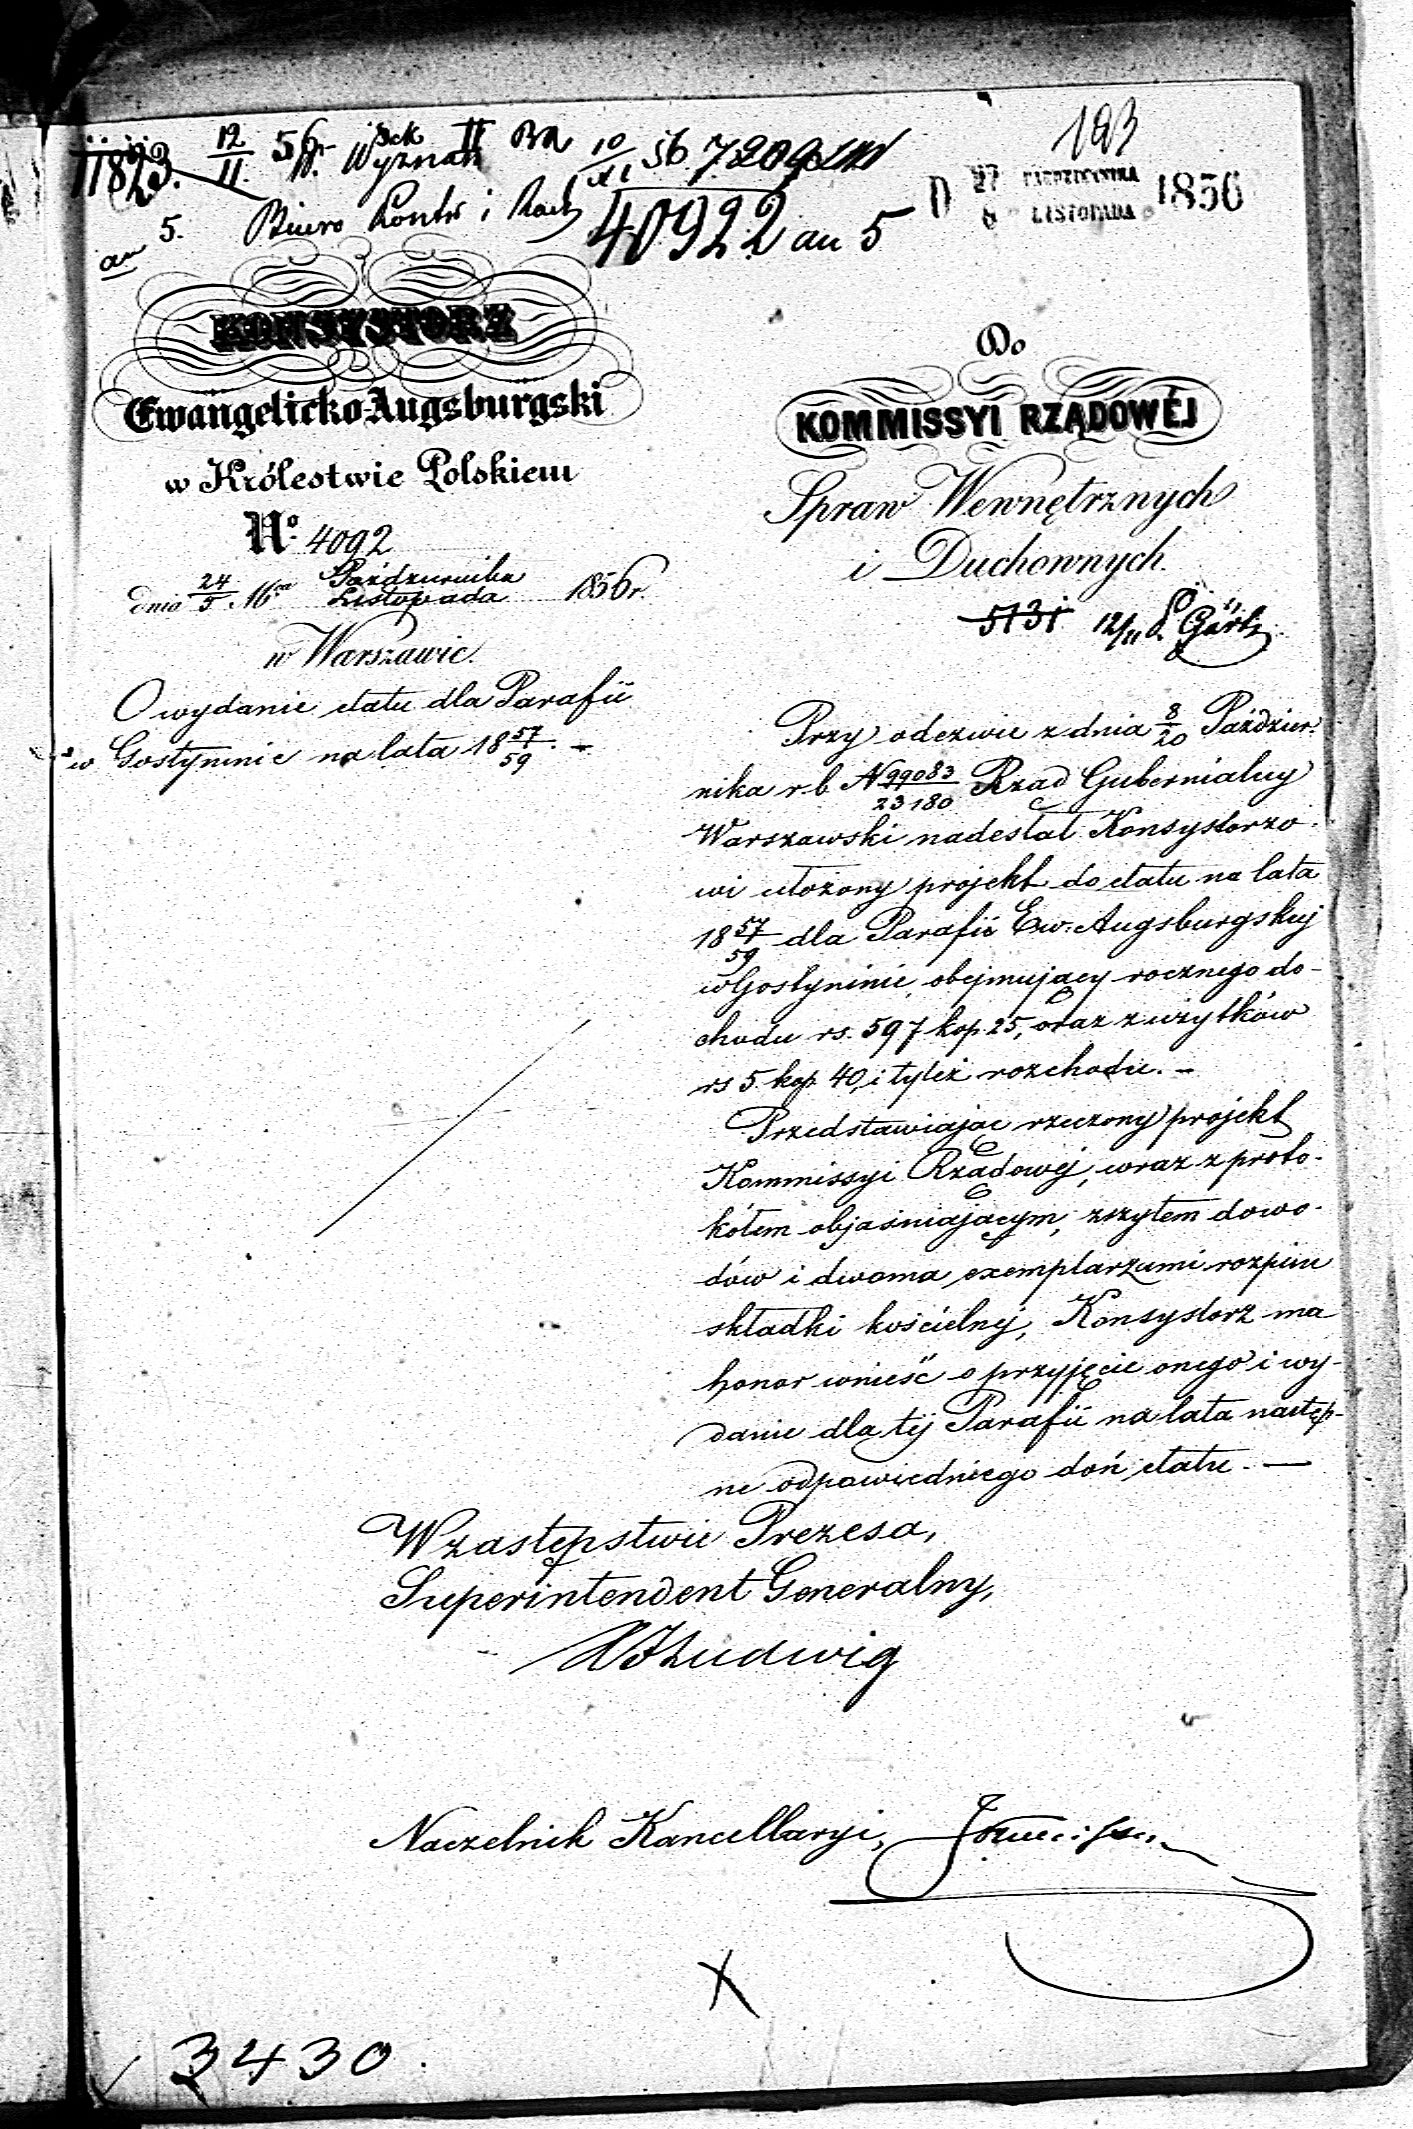 193
11823. 12/11 56 Wyznań II 10/XI 56 7209
an 5. Biuro Kontr i Rach
40922 an 5
D 27 PAŹDZIERNIKA
8 LISTOPADA 1856
KONSYSTORZ
Ewangelicko-Augsburgski
w Królestwie Polskiem
No. 4092
dnia 24/5. Października
Listopada 1856 r.
w Warszawie.
O wydanie etatu dla Parafii
w Gostyninie na lata 18 57/59. –
Do
KOMMISSYI RZĄDOWÉJ
Spraw Wewnętrznych
i Duchownych.
5131 12/11
Przy odezwie z dnia 8/20 Paździer-
nika r. b. N 99083/23180 Rząd Gubernialny
Warszawski nadesłał Konsystorzo-
wi ułożony projekt do etatu na lata
18 57/59 dla Parafii Ew: Augsburgskiej
w Gostyninie, obejmujący rocznego do-
chodu rs. 597 kop. 25, oraz z użytków
rs 5. kop. 40, i tyleż rozchodu. –
Przedstawiając rzeczony projekt
Kommissyi Rządowej, wraz z proto-
kółem objaśniającym, zszytem dowo-
dów i dwoma exemplarzami rozpisu
składki kościelnej, Konsystorz ma
honor wnieść o przyjęcie onego i wy-
danie dla tej Parafii na lata następ-
ne odpowiedniego doń etatu. —
W zastępstwie Prezesa,
Superintendent Generalny,
Ludwig
Naczelnik Kancellaryi,
X
3430.